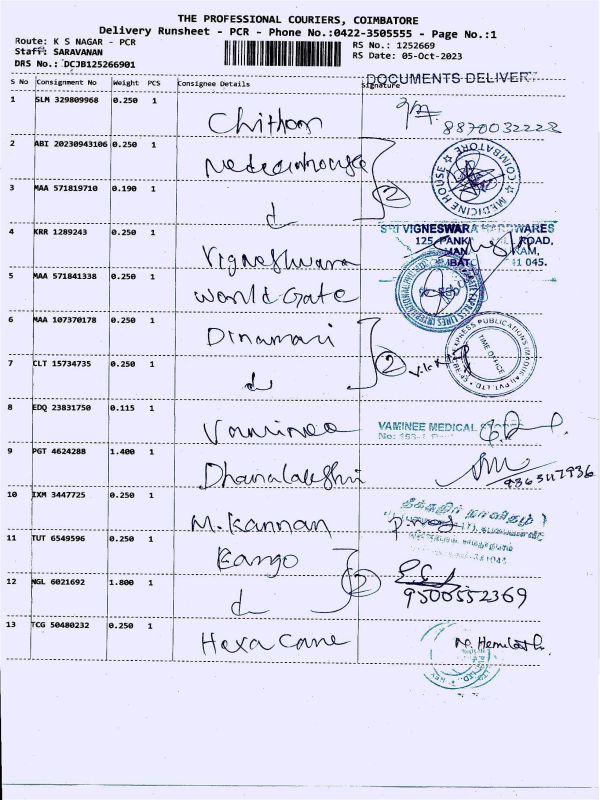 THE PROFESSIONAL COURIERS, COIMBATORE
Delivery Runsheet - PCR - Phone No.:0422-3505555 - Page No.:1
Route: K S NAGAR - PCR
RS No.: 1252669
Staff: SARAVANAN
RS Date: 05-Oct-2023
DRS No.: DCJB125266901
DOCUMENTS DELIVERY
S No Consignment No Weight PCS Consignee Details Signature
1 SLM 329809968 0.250 1
8870032228
2 ABI 20230943106 0.250 1
MEDICINE HOUSE COIMBATORE
3 MAA 571819710 0.190 1
2
SRI VIGNESWARA HARDWARES
125, ROAD,
4 KRR 1289243 0.250 1 Vigneshwara
5 MAA 571841338 0.250 1 World Gate
6 MAA 107370178 0.250 1 Dinamani
EXPRESS PUBLICATIONS (MADURAI) PVT. LTD.
TIME OFFICE
7 CLT 15734735 0.250 1
2
8 EDQ 23831750 0.115 1 Vaminee
VAMINEE MEDICAL
9 PGT 4624288 1.400 1 Dhanalakshmi
9365117936
10 IXM 3447725 0.250 1 M. Kannan
தீக்கதிர் நாளிதழ்
11 TUT 6549596 0.250 1 Kango
12 NGL 6021692 1.800 1
2
9500552369
13 TCG 50480232 0.250 1 Hexa Cane